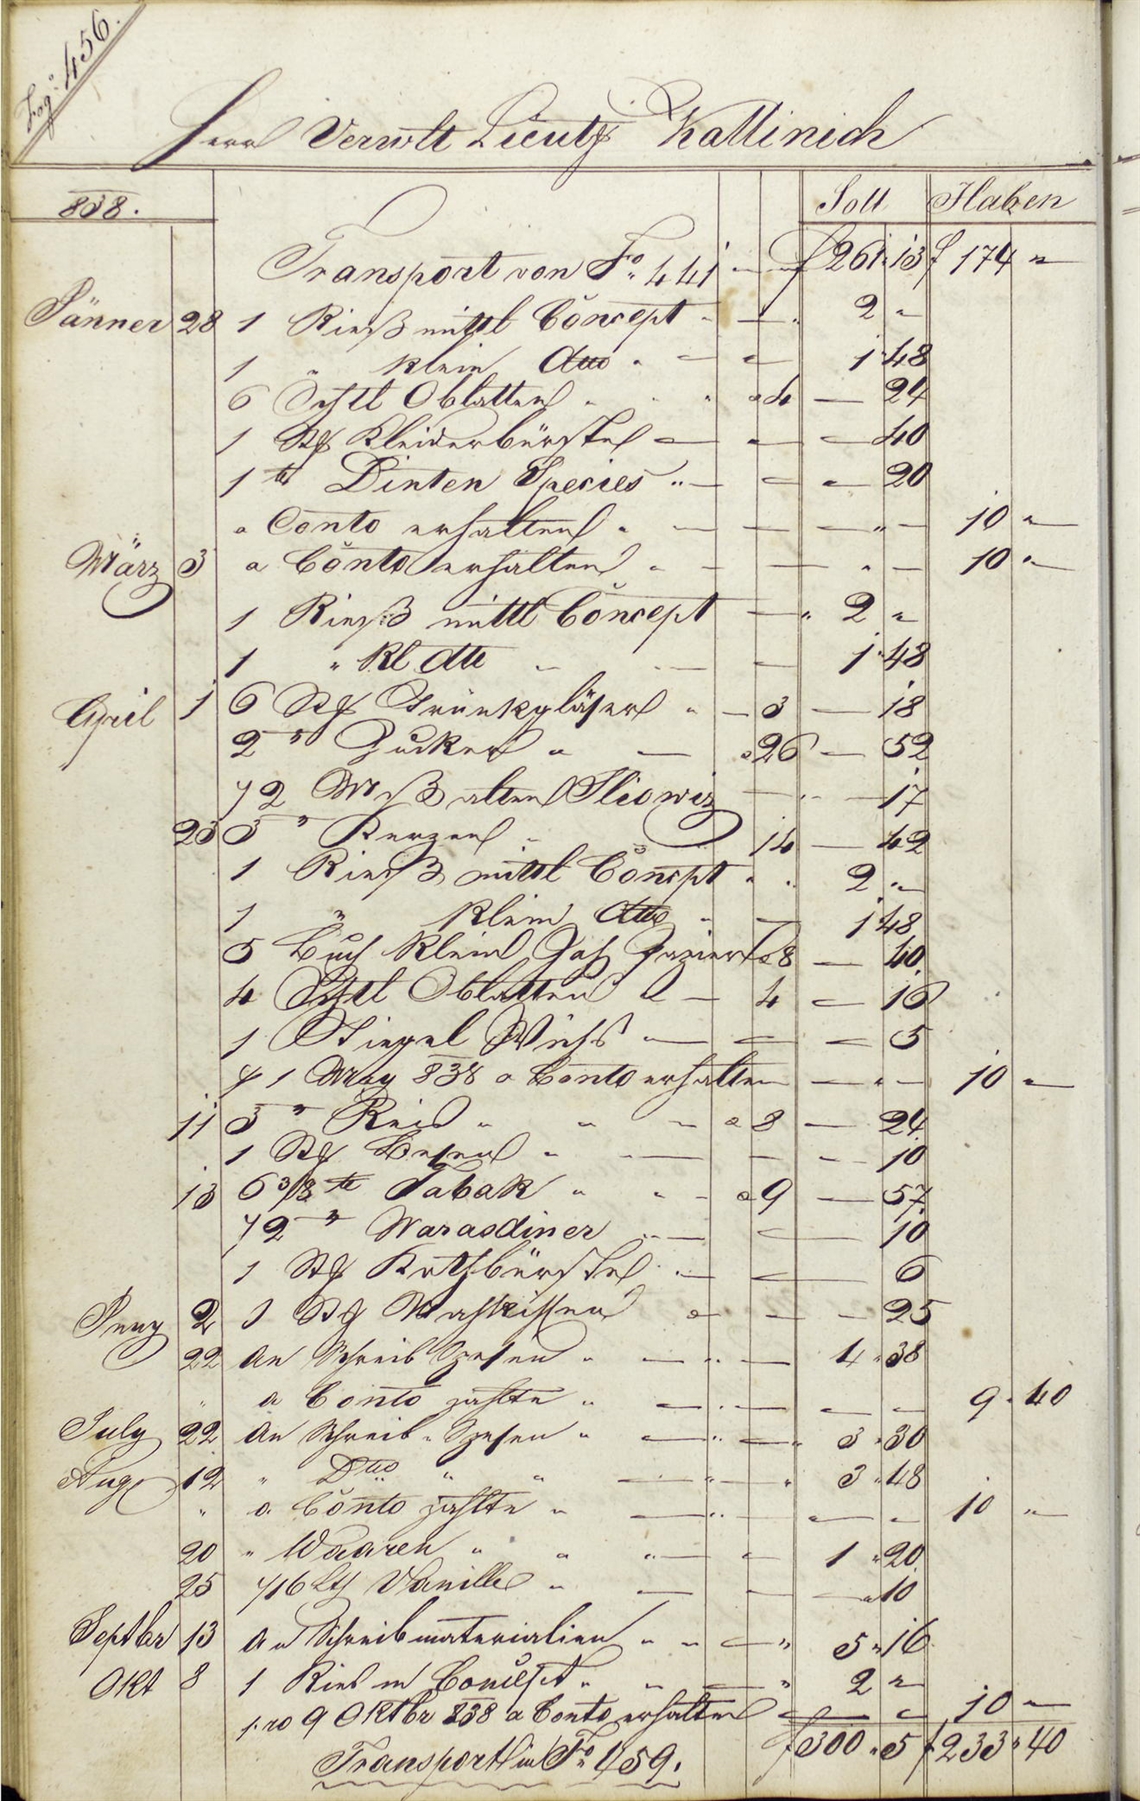 Fog: 456.
Herr Verwlt Lieutz Kallinich
838. Soll Haben
Transport von Fo. 441 — f 261 13 f 174 "
Jänner 28 1 Rieß mittl Concept " — 2 "
1 " klein dtto " — 1 48
6 Schtl Oblatten " " " a 4 — 24
1 Stk Kleiderbürste — — — 40
1 tt Dinten Species " — — — 20
a Conto erhalten " — — " — 10 "
März 3 a Conto erhalten " — — " — 10 "
1 Rieß mittl Concept — " 2 "
1 " Kl dtt — — 1 48
April 1 6 Stk Trünkgläser " — 3 — 18
2 " Zucker " — a 26 — 52
1/2 Mß alten Sliowiz — — 17
23 3 " Kerzen " 14 — 42
1 Rieß mittl Concpt " " 2 "
1 " klein dtto " — 1 48
5 Buch klein Papier a 8 — 40
4 Schtl Oblatten a — 4 — 16
1 Tiegel Wichs — — — 5
p 1 May 838 a Conto erhalten — " — 10 "
11 3 " Reis " " — a 8 — 24
1 Stk Besen " — — — 10
13 6 3/8 tt Tabak " " — a 9 — 57
1/2 " Warasdiner " — — 10
1 Stk Kothbürste " — — 6
Juny 2 1 Stk — — — 25
22 An Schreib Spesen " — " — 4 " 38
" a Conto zahlte " — " — — — 9 " 40
July 22 An Schreib " Spesen " — " — " 3 " 30
Aug 12 " Dtto " " — " — " 3 " 48
" a Conto zahlte " — " — — 10 "
20 " Waaren " " " — — 1 " 20
25 1/16 Lth Vanille " — — " 10
Septbr 13 An Schreibmaterialien " " — " 5 " 16
Okt 8 1 Ries m Concept " " — " 2 "
pro 9 Oktbr 838 a Conto erhalten — — 10 "
Transport in Fo 459. f 300 " 5 f 233 " 40